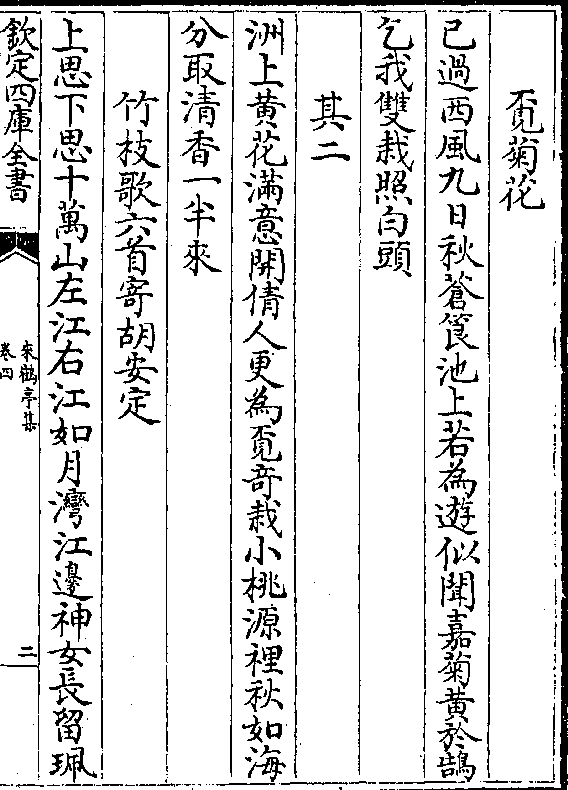 覔菊花
已過西風九日秋蒼筤池上若為遊似聞嘉菊黄於鵠
乞我雙栽照白頭
其二
洲上黄花滿意開倩人更為覔竒栽小桃源裡秋如海
分取清香一半來
竹枝歌六首寄胡安定
上思下思十萬山左江右江如月灣江邊神女長留珮
欽定四庫全書
來鶴亭集
卷四
二